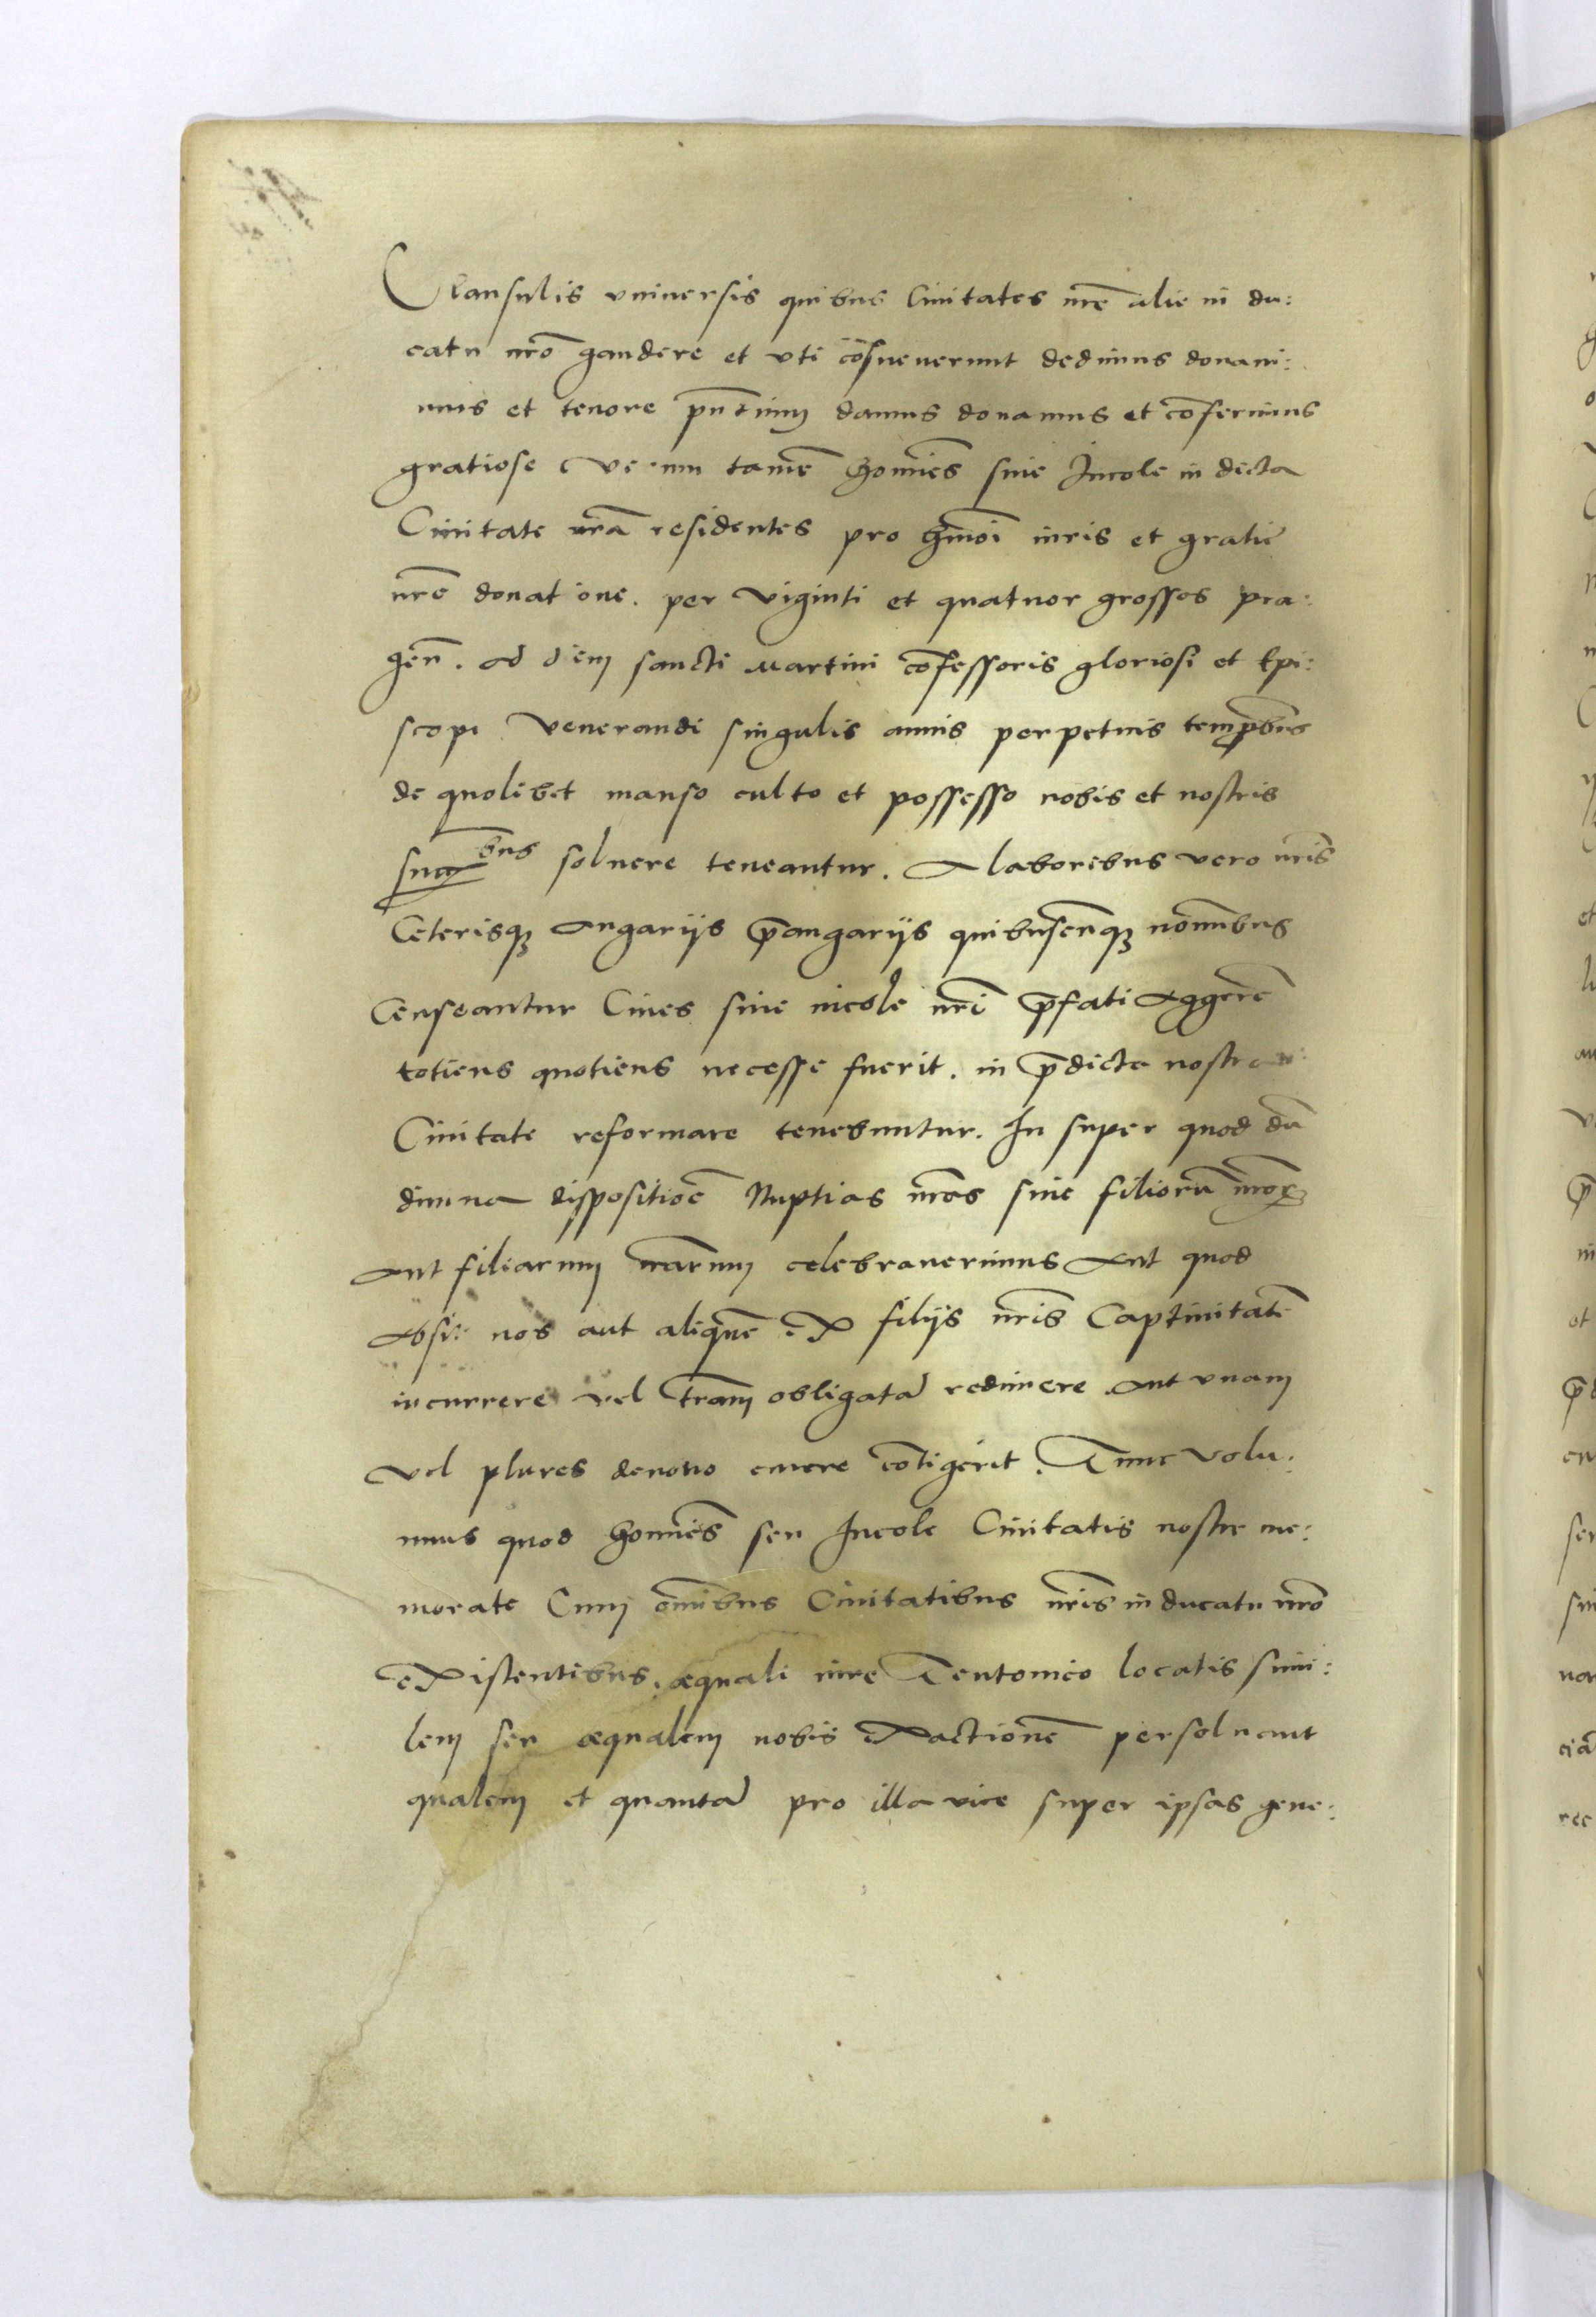 Clausulis vniuersis quibus Ciuitates nrē alie in du:
catu nrō gaudere et vti cōsueuerunt dedimus donaui:
mus et tenore pn̄tium damus donamus et cōferimus
gratiose Verum tamē hom̄ies siue Incole in dicta
Ciuitate nrā residentes pro hmōi iuris et gratie
nrē donatione. per viginti et quatuor grossos pra:
gen̄. Ad diem sancti Martini cōfessoris gloriosi et Epi:
scopi Venerandi singulis annis perpetuis temp̄bus
de quolibet manso culto et possesso nobis et nostris
soluere teneantur. A laboribus vero nr̄is
Ceterisq; Angarijs p̄angarijs quibuscunq; nom̄ibus
Censeantur Ciues siue incole nrī p̄fati Aggerē
totiens quotiens necesse fuerit. in p̄dicta nostra
Ciuitate reformare tenebuntur. In super quod dū
diuina dispositiōe Nuptias nrās siue filiorū nrōꝝ
Aut filiarum nrārum celebrauerimus Aut quod
Absit nos aut aliquē ex filijs nr̄is Captiuitatē
incurrere vel trām obligatā redimere Aut vnam
Vel plures denouo emere cōtigerit. Tunc volu:
mus quod hom̄ies seu Incole Ciuitatis nostre me:
morate Cum om̄ibus Ciuitatibus nr̄is in ducatu nrō
existentibus. æquali iure Teutonico locatis simi:
lem seu æqualem nobis exactionē persoluant
qualem et quantā pro illa vice super ipsas gene: